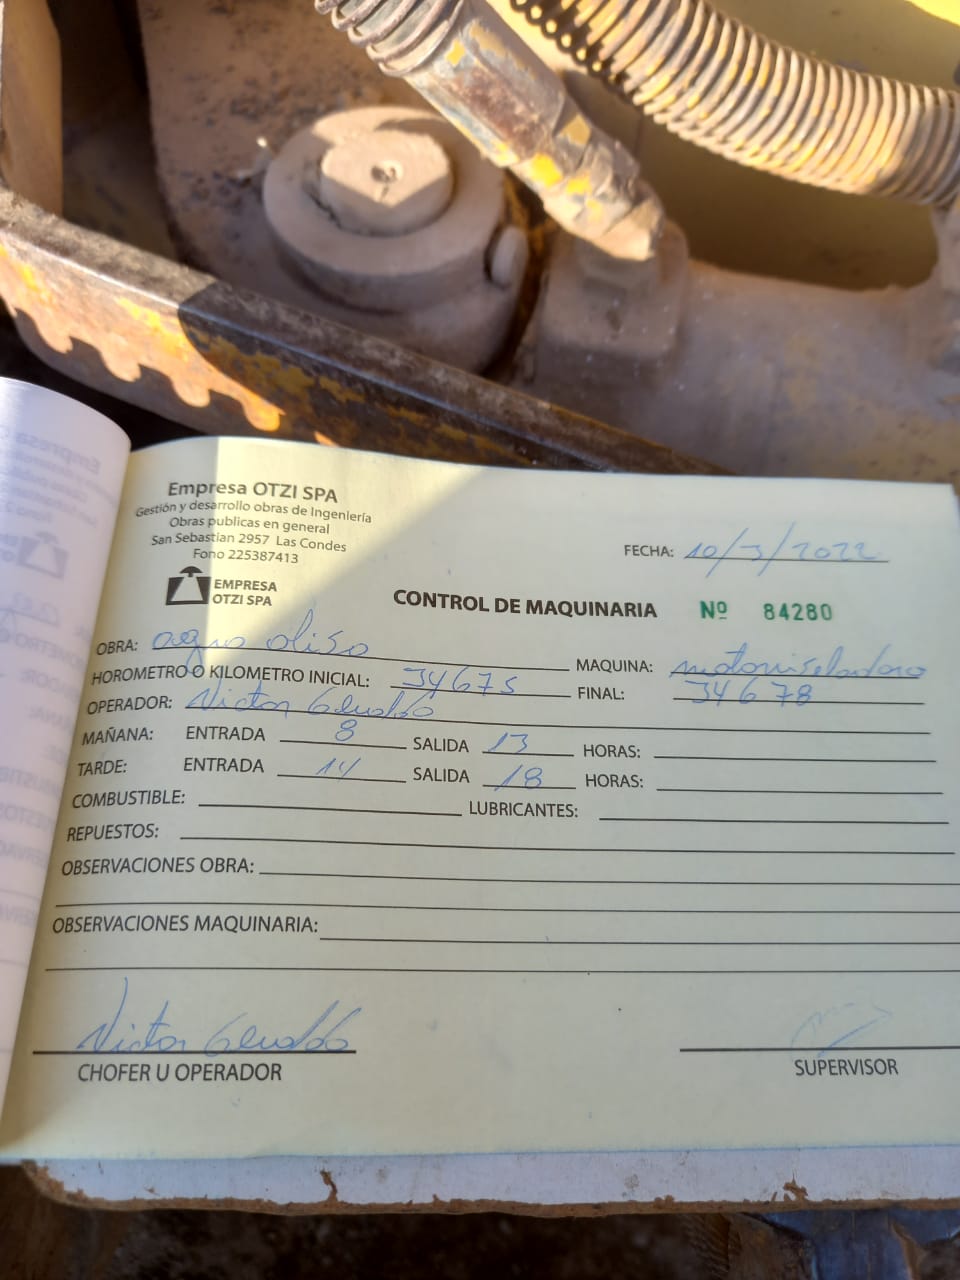 Empresa OTZI SPA
Gestión y desarrollo obras de Ingeniería
Obras publicas en general
San Sebastian 2957 Las Condes
Fono 225387413
EMPRESA
OTZI SPA
FECHA: 10/3/2022
CONTROL DE MAQUINARIA Nº 84280
OBRA: MAQUINA:
HOROMETRO O KILOMETRO INICIAL: 34675 FINAL: 34678
OPERADOR: Victor
MAÑANA: ENTRADA 8 SALIDA 13 HORAS:
TARDE: ENTRADA 14 SALIDA 18 HORAS:
COMBUSTIBLE: LUBRICANTES:
REPUESTOS:
OBSERVACIONES OBRA:
OBSERVACIONES MAQUINARIA:
Victor
CHOFER U OPERADOR SUPERVISOR